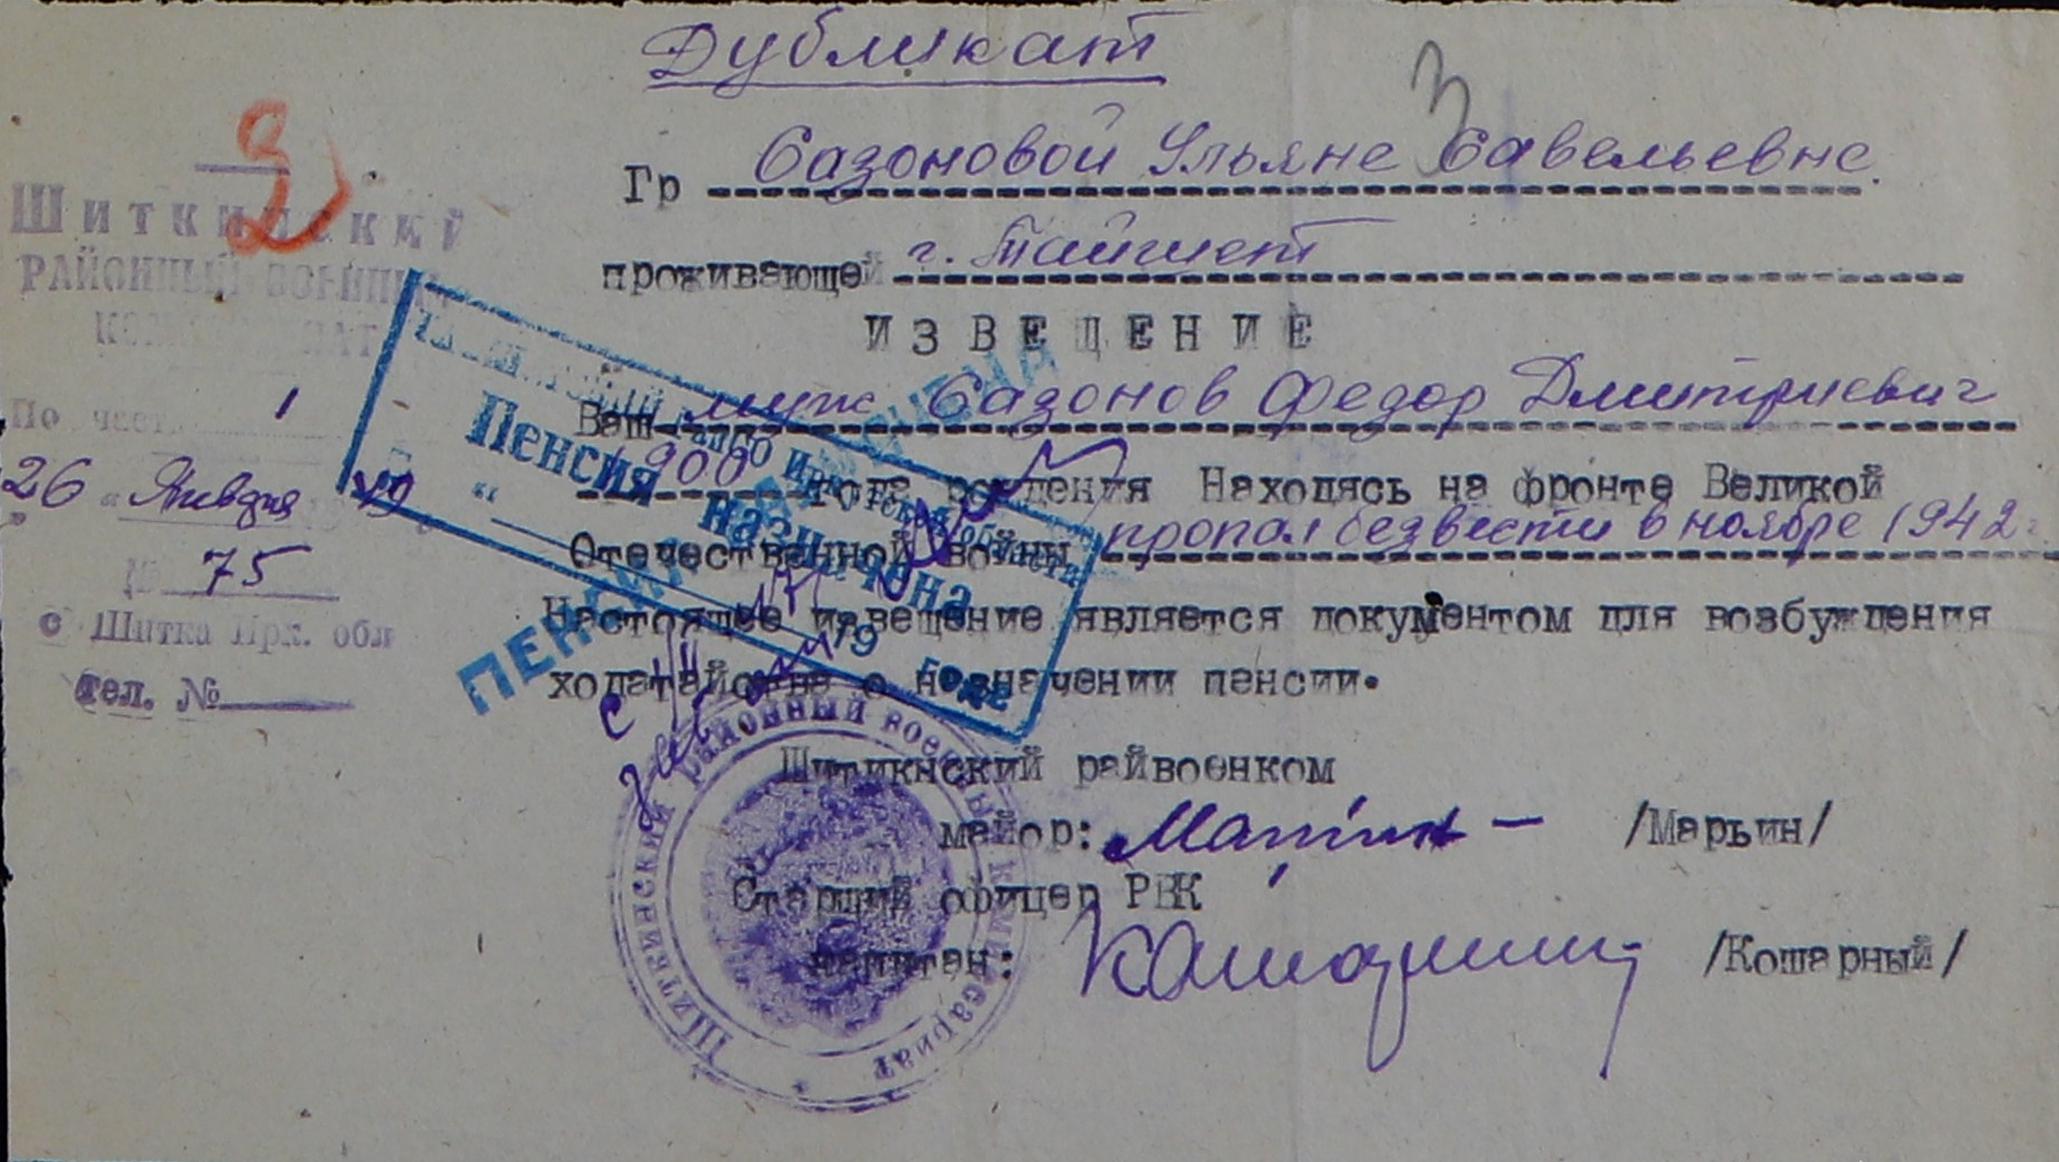 Дубликат
3
2
Гр Сазоновой Ульяне Савельевне.
проживающей г. Тайшет
ИЗВЕЩЕНИЕ
Ваш муж Сазонов Федор Дмитриевич
1900 года рождения Находясь на фронте Великой
Отечественной войны пропал без вести в ноябре 1942 г.
Настоящее извещение является документом для возбуждения
ходатайства о назначении пенсии.
Шиткинский райвоенком
майор: /Марьин/
Старший офицер РВК
капитан: /Кошарный/
Шиткинский
РАЙОННЫЙ ВОЕННЫЙ
КОМИССАРИАТ
По част. 1
26 " Января 19
№ 75
с Шитка Ирк. обл
тел. №
Пенсия назначена
" 19 года
ПЕНСИЯ НАЗНАЧЕНА
Шиткинский районный военный комиссариат